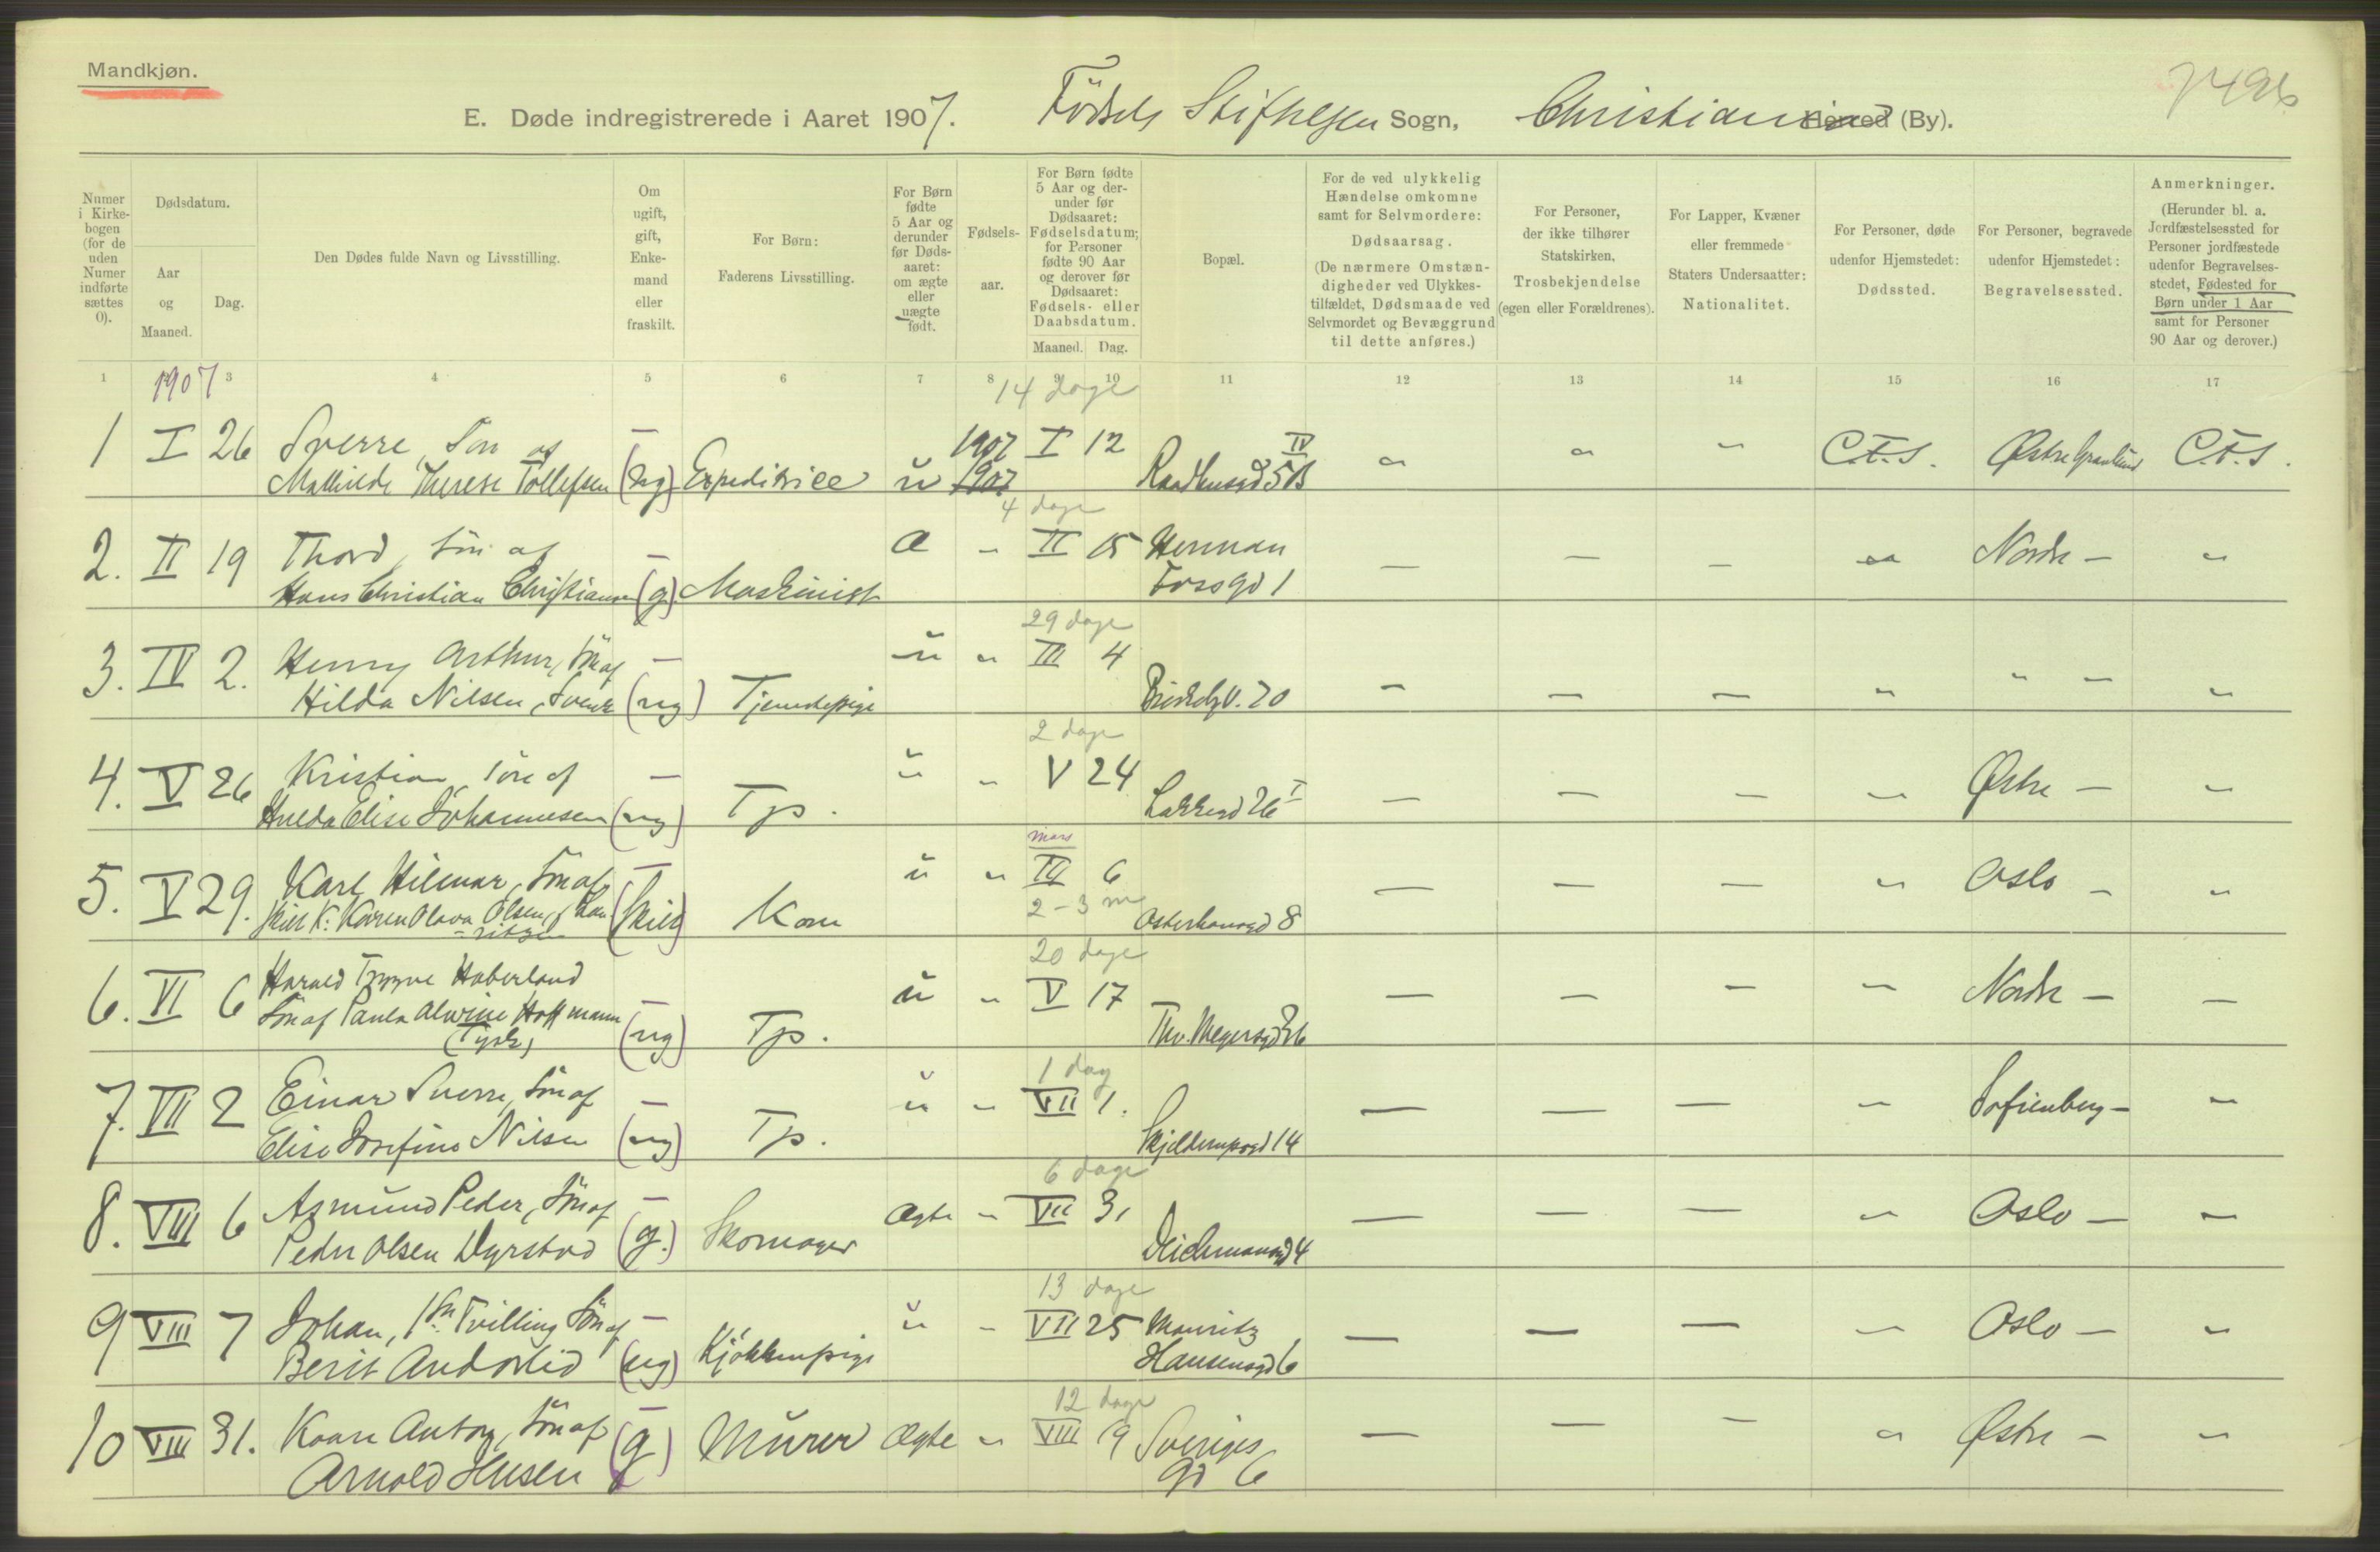 Mandkjøn.
7496
E. Døde indregistrerede i Aaret 1907. Fødsels Stiftelsen Sogn, Christiania Herred (By).
Numer i Kirkebogen (for de uden Numer indførte sættes 0).
Dødsdatum.
Aar og Maaned.
Dag.
Den Dødes fulde Navn og Livsstilling.
Om ugift, gift, Enkemand eller fraskilt.
For Børn:
Faderens Livsstilling.
For Børn fødte 5 Aar og derunder før Dødsaaret: om ægte eller uægte født.
Fødselsaar.
For Børn fødte 5 Aar og derunder før Dødsaaret: Fødselsdatum; for Personer fødte 90 Aar og derover før Dødsaaret: Fødsels- eller Daabsdatum.
Maaned. Dag.
Bopæl.
For de ved ulykkelig Hændelse omkomne samt for Selvmordere: Dødsaarsag.
(De nærmere Omstændigheder ved Ulykkestilfældet, Dødsmaade ved Selvmordet og Bevæggrund til dette anføres.)
For Personer, der ikke tilhører Statskirken, Trosbekjendelse (egen eller Forældrenes).
For Lapper, Kvæner eller fremmede Staters Undersaatter: Nationalitet.
For Personer, døde udenfor Hjemstedet: Dødssted.
For Personer, begravede udenfor Hjemstedet: Begravelsessted.
Anmerkninger.
(Herunder bl. a. Jordfæstelsessted for Personer jordfæstede udenfor Begravelsesstedet, Fødested for Børn under 1 Aar samt for Personer 90 Aar og derover.)
1 1907 3 4 5 6 7 8 9 10 11 12 13 14 15 16 17
14 dage
1 I 26 Sverre, Søn af — 1907 I 12 IV " " " C.F.S. Østre Gravlund C.F.S.
Mathilde Therese Tollefsen (ug) Expeditrice u 1907 Raadhusgd 5B
4 dage
2. II 19 Thord, Søn af — a " II 15 Herman — — — " Nordre — "
Hans Christian Christiansen (g). Maskinist Fossgd 1
29 dage
3. IV 2. Henry Arthur, Søn af — u " III 4 — — — " " — "
Hilda Nilsen, Svensk (ug) Tjenestepige 20
2 dage
4. V 26 Kristian, Søn af — u " V 24 — — — " Østre — "
Hulda Elise Johannesen (ug) Tjp. Lakkegd 26 I
mars
5. V 29. Karl Hilmar, Søn af — u " III 6 — — — " Oslo — "
2 - 3 m
Skilt K. Karen Olava Olsen, f. Lauritzen (skilt) Kone Osterhausgd 8
20 dage
6. VI 6 Harald Trygve Haberland — u " V 17 — — — " Nordre — —
Søn af Paula Alwine Hoffmann (ug) Tjp. Thv. Meyersgd 26
(Tysk)
1 dag
7. VII 2 Einar Sverre, Søn af — u " VII 1. — — — " Sofienberg — "
Elise Josefine Nilsen (ug) Tp. Skjeldrupsgd 14
6 dage
8. VIII 6 Asmund Peder, Søn af — Ægte " VII 31 — — — " Oslo — "
Peder Olsen Dyrstad (g.) Skomager Deichmansgd 4
13 dage
9 VIII 7 Johan, 1ste Tvilling Søn af — u " VII 25 Mauritz — — — " Oslo — "
Berit Andorlid (ug) Kjøkkenpige Hansensgd 6
12 dage
10 VIII 31. Kaare Anton, Søn af — Ægte " VIII 19 Sveriges — — — " Østre — "
Arnold Husen (g) Murer gd 6